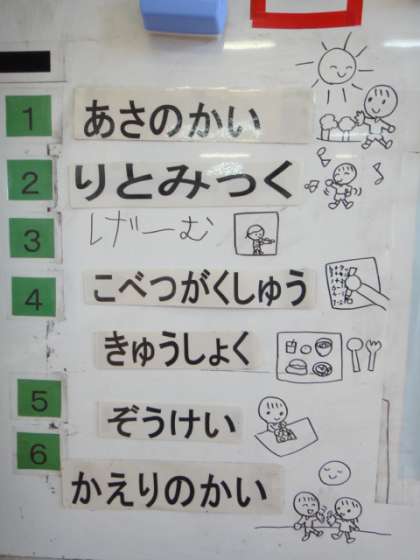 1 あさのかい
2 りとみっく
3 げーむ
4 こべつがくしゅう
きゅうしょく
5 ぞうけい
6 かえりのかい